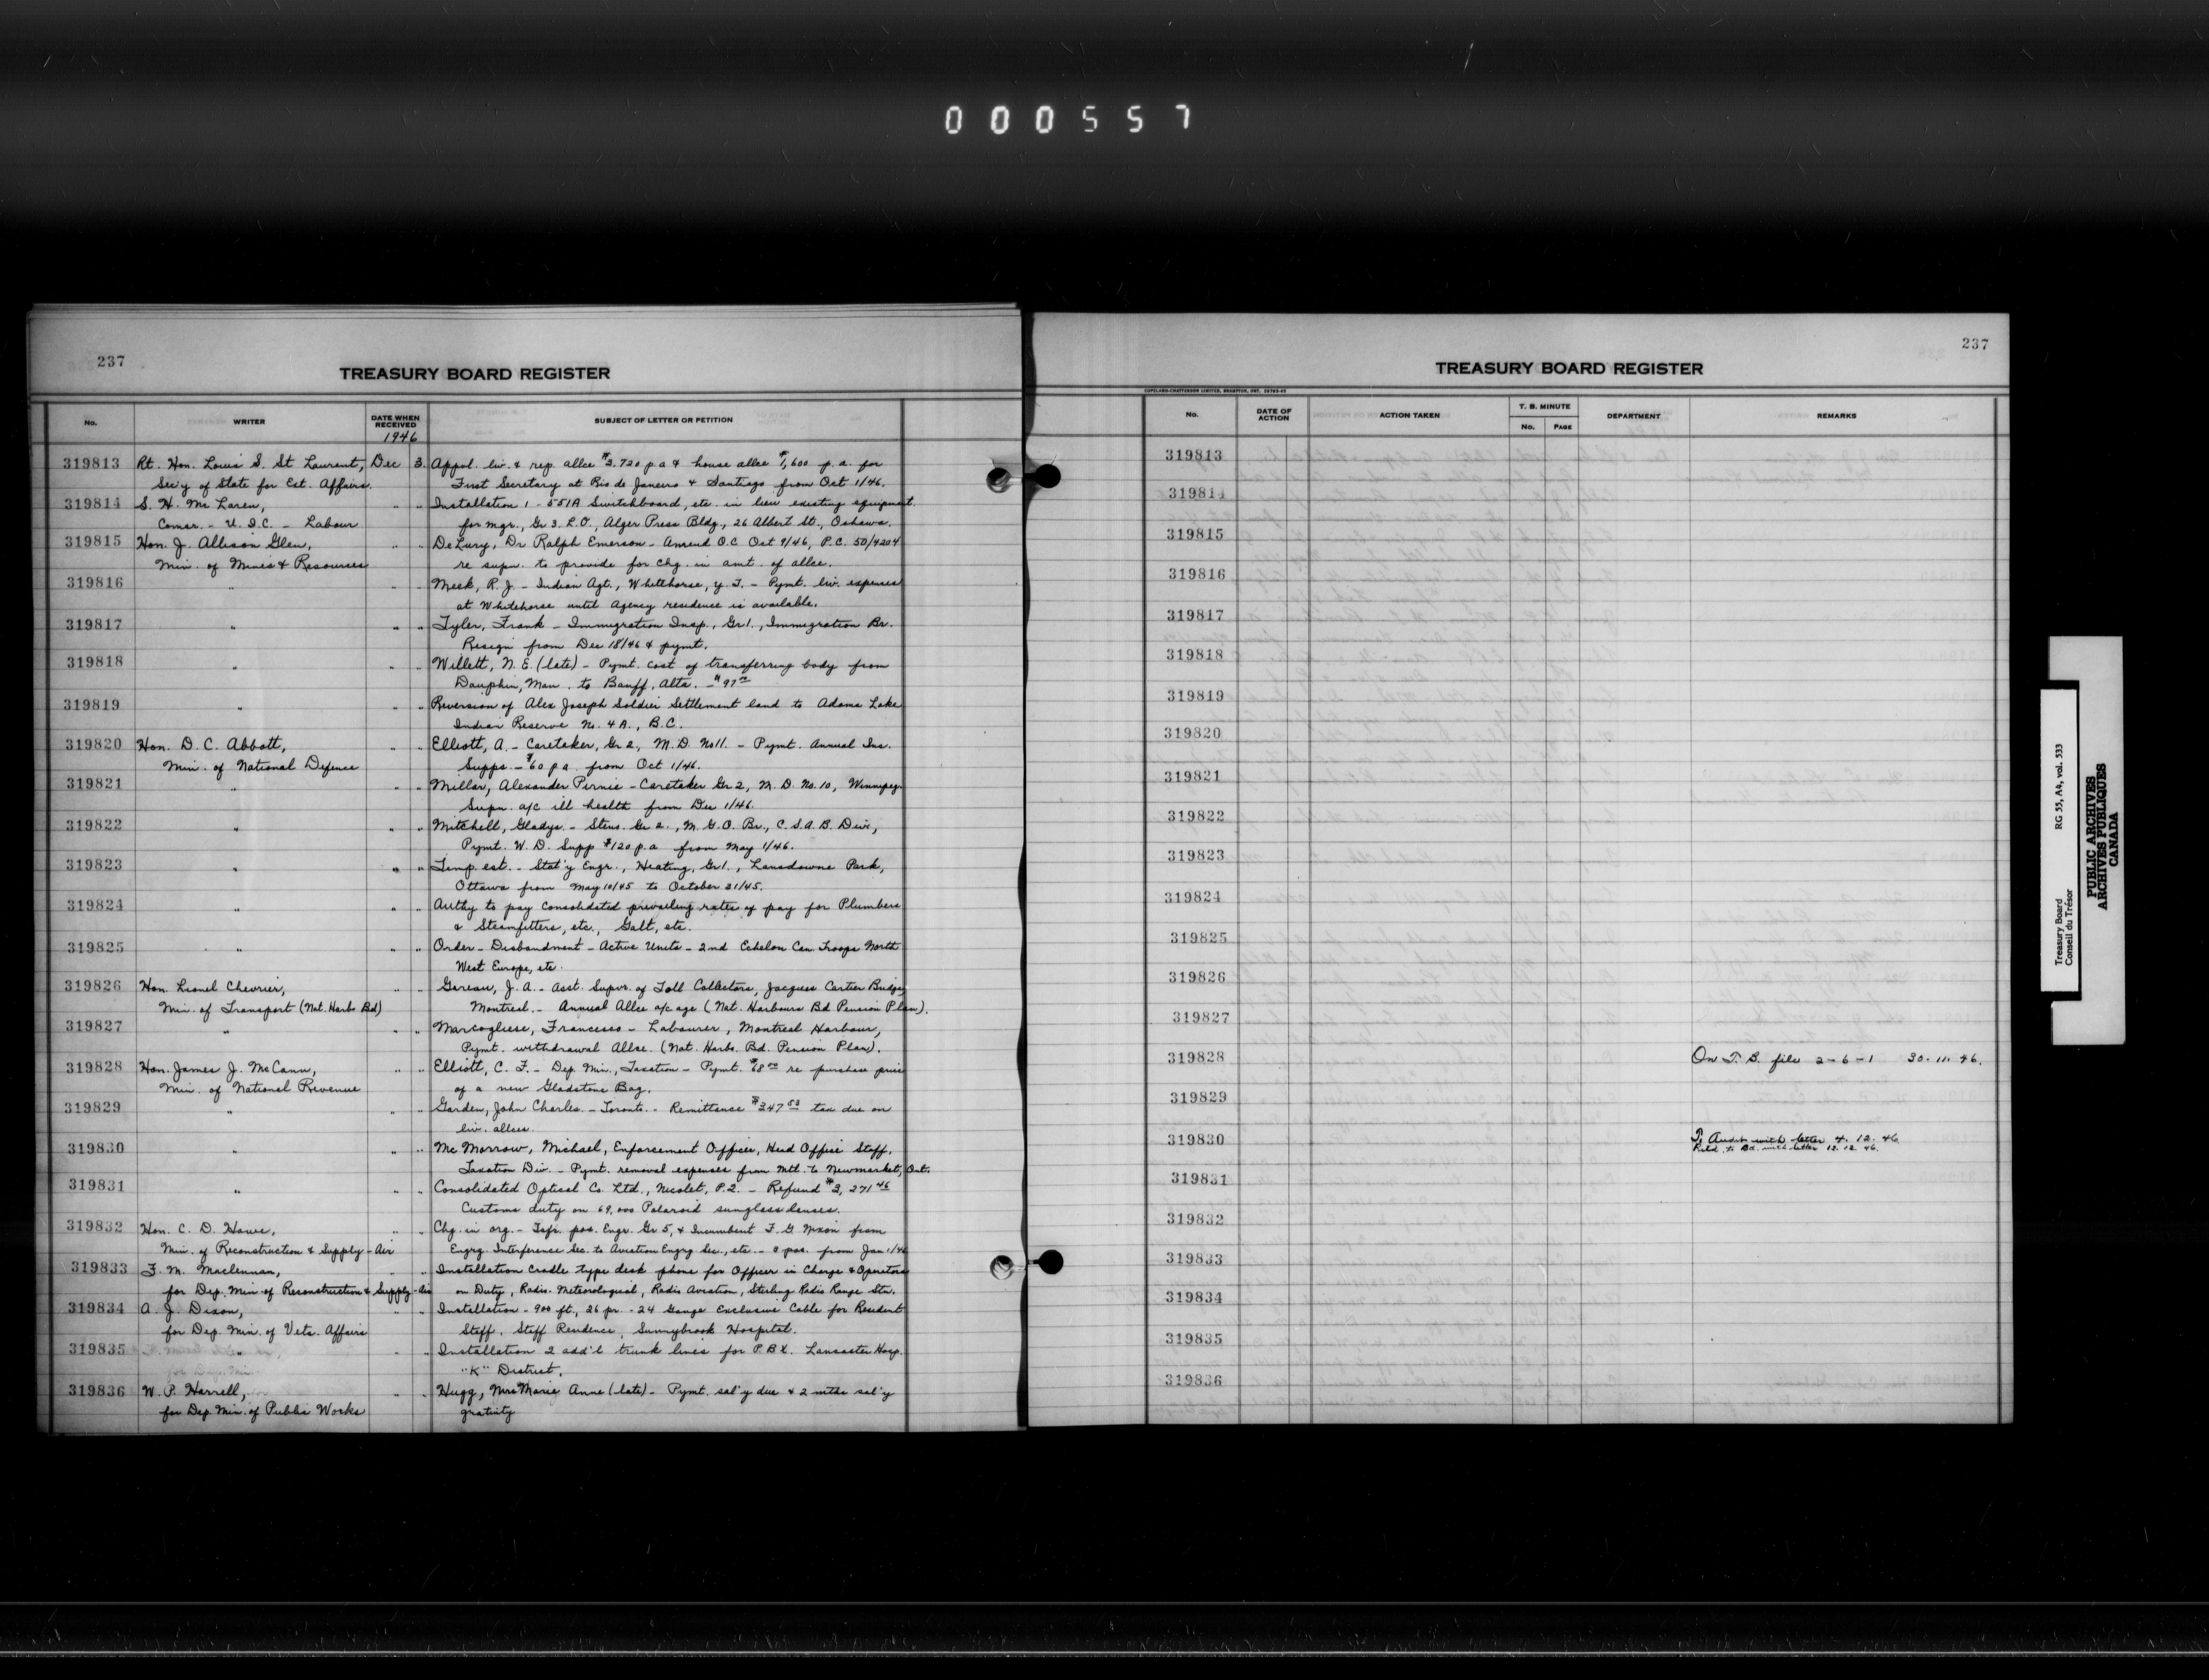 000557
237
TREASURY BOARD REGISTER
No. WRITER DATE WHEN RECEIVED SUBJECT OF LETTER OR PETITION
1946
319813 Rt. Hon. Louis S. St Laurent, Dec 3. Appol. liv. & rep. allce $3,720 p.a & house allce $1,600 p.a. for
Sec'y of State for Ext. Affairs. First Secretary at Rio de Janeiro & Santiago from Oct 1/46.
319814 S. H. McLaren, " " Installation 1 - 551A Switchboard, etc. in lieu existing equipment
Comsr. - U.I.C. - Labour for mgr., Gr 3. L.O., Alger Press Bldg., 26 Albert St., Oshawa.
319815 Hon. J. Allison Glen, " " DeLury, Dr Ralph Emerson - Amend O.C. Oct 9/46, P.C. 50/4204
Min. of Mines & Resources re supn. to provide for chg. in amt. of allce.
319816 " " " Meek, R. J. - Indian Agt., Whitehorse, Y.T. - Pymt. liv. expenses
at Whitehorse until Agency residence is available.
319817 " " " Tyler, Frank - Immigration Insp., Gr 1., Immigration Br.
Resign from Dec 18/46 & pymt.
319818 " " " Willett, N. E. (late) - Pymt. cost of transferring body from
Dauphin, Man. to Banff, Alta. - $97.00
319819 " " " Reversion of Alex Joseph Soldier Settlement land to Adams Lake
Indian Reserve No. 4A., B.C.
319820 Hon. D. C. Abbott, " " Elliott, A. - Caretaker, Gr 2, M.D. No 11. - Pymt. Annual Inc.
Min. of National Defence Supps. - $60 p.a. from Oct 1/46.
319821 " " " Millar, Alexander Pirnie - Caretaker Gr 2, M.D. No. 10, Winnipeg.
Supn. a/c ill health from Dec 1/46.
319822 " " " Mitchell, Gladys. - Steno. Gr 2., M.G.O. Br., C.S.A.B. Divn,
Pymt. W.D. Supp $120 p.a from May 1/46.
319823 " " " Temp. est. - Stat'y Engr., Heating, Gr 1., Lansdowne Park,
Ottawa from May 10/45 to October 31/45.
319824 " " " Authy to pay consolidated prevailing rates of pay for Plumbers
& Steamfitters, etc., Galt, etc.
319825 " " " Order - Disbandment - Active Units - 2nd Echelon Can. Troops North
West Europe, etc.
319826 Hon. Lionel Chevrier, " " Gareau, J. A. - Asst. Supvr. of Toll Collectors, Jacques Cartier Bridge,
Min. of Transport (Nat. Harbs Bd) Montreal. - Annual Allce a/c age (Nat. Harbours Bd Pension Plan).
319827 " " " Marcogliese, Francesco - Labourer, Montreal Harbour,
Pymt. withdrawal Allce. (Nat. Harbs. Bd. Pension Plan).
319828 Hon. James J. McCann, " " Elliott, C. F. - Dep. Min., Taxation - Pymt. $68.00 re purchase price
Min. of National Revenue of a new Gladstone Bag.
319829 " " " Garden, John Charles. - Toronto. - Remittance $347.53 tax due on
liv. allces.
319830 " " " McMorrow, Michael, Enforcement Officer, Head Office Staff,
Taxation Div. - Pymt. removal expenses from Mtl. to Newmarket, Ont.
319831 " " " Consolidated Optical Co. Ltd., Nicolet, P.Q. - Refund $3,271.46
Customs duty on 69,000 Polaroid sunglass lenses.
319832 Hon. C. D. Howe, " " Chg. in org. - Tsfr. pos. Engr. Gr 5, & Incumbent F. G. Nixon from
Min. of Reconstruction & Supply - Air Engrg. Interference Sec. to Aviation Engrg. Sec., etc. - pos. from Jan 1/46
319833 F. M. Maclennan, " " Installation cradle type desk phone for Officer in Charge & Operators
for Dep. Min. of Reconstruction & Supply - Air on Duty, Radio Meteorological, Radio Aviation, Stirling Radio Range Stn.
319834 A. J. Dixon, " " Installation - 900 ft, 26 pr. - 24 Gauge Exclusive Cable for Resident
for Dep. Min. of Vets. Affairs Staff, Staff Residence, Sunnybrook Hospital.
319835 " " " Installation 2 add'l trunk lines for P.B.X. Lancaster Hosp.
"K" District.
319836 W. P. Harrell, " " Hugg, Mrs Marie Anne (late) - Pymt. sal'y due & 2 mths sal'y
for Dep. Min. of Public Works gratuity
237
TREASURY BOARD REGISTER
COPELAND-CHATTERSON LIMITED, BRAMPTON, ONT.
No. DATE OF ACTION ACTION TAKEN T. B. MINUTE No. PAGE DEPARTMENT REMARKS
319813
319814
319815
319816
319817
319818
319819
319820
319821
319822
319823
319824
319825
319826
319827
319828 On T. B. file 2-6-1 30.11.46.
319829
319830 To Audit with letter 4.12.46
Retd. to Bd. with letter 12.12.46.
319831
319832
319833
319834
319835
319836
Treasury Board RG 55, A4, vol. 533
Conseil du Trésor
PUBLIC ARCHIVES
ARCHIVES PUBLIQUES
CANADA